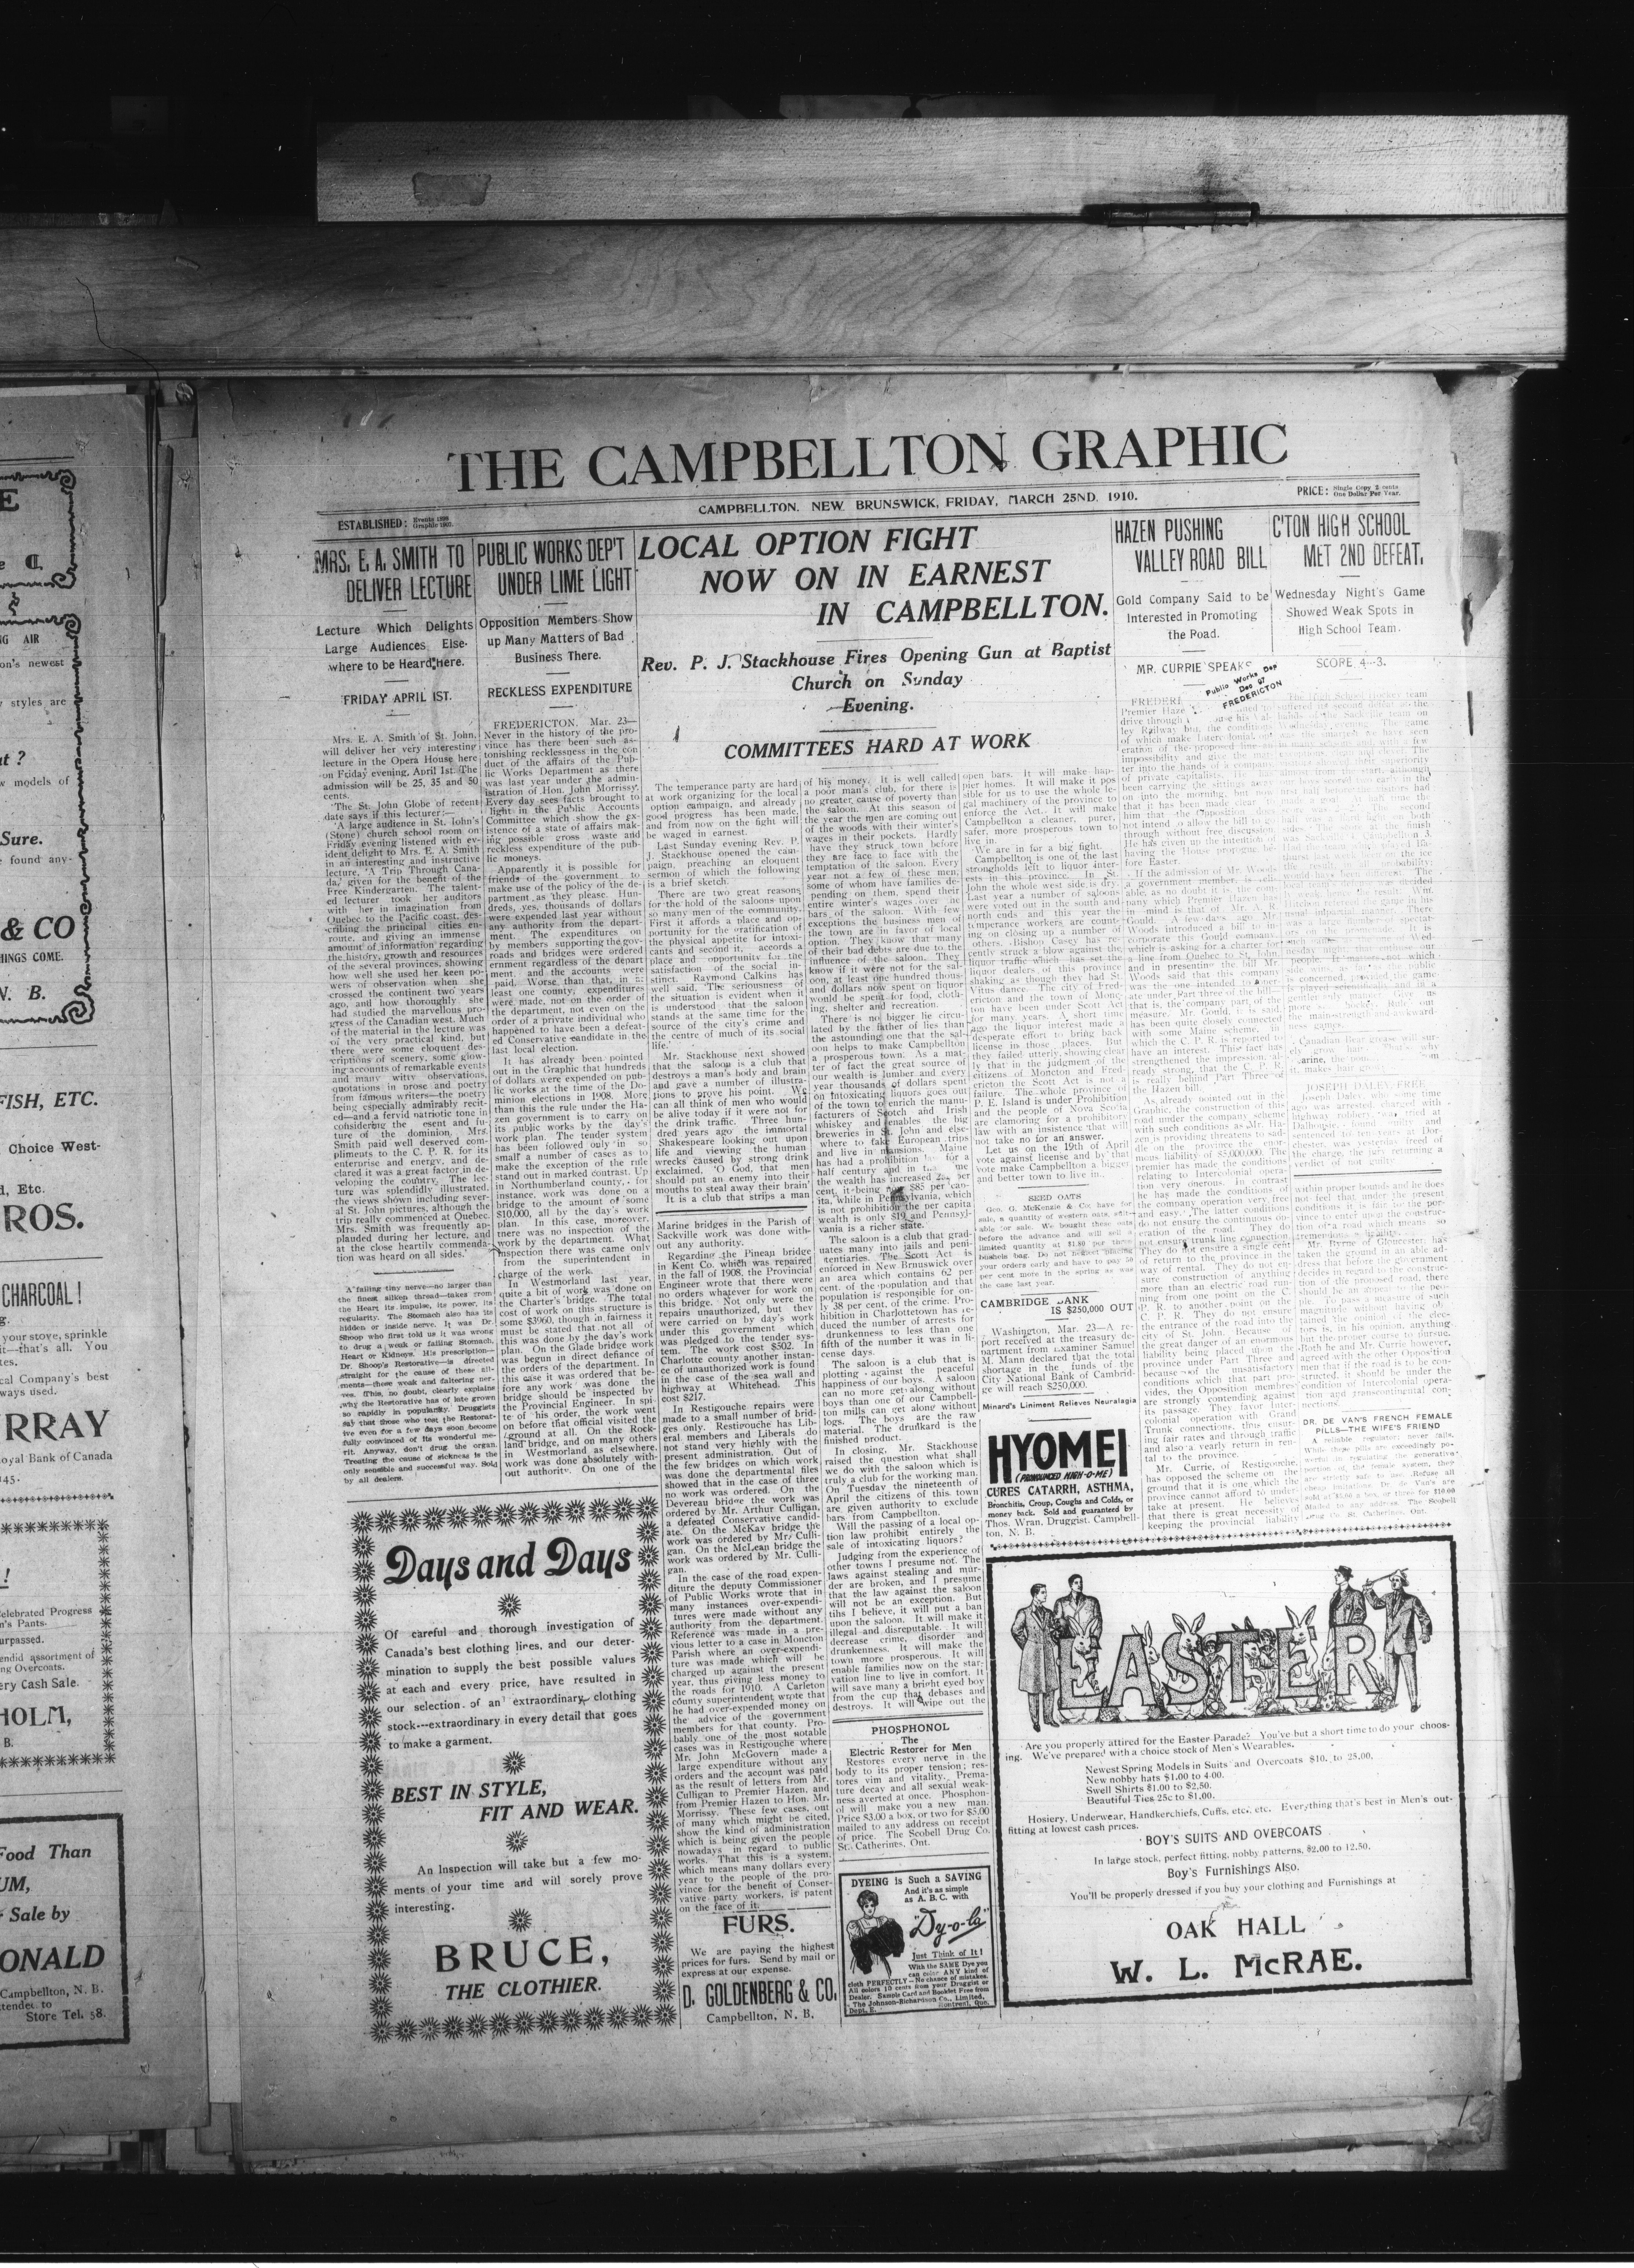 THE CAMPBELLTON GRAPHIC
ESTABLISHED:
CAMPBELLTON, NEW BRUNSWICK, FRIDAY, MARCH 25ND, 1910.
PRICE: Single Copy 2 cents
One Dollar Per Year.
MRS. E. A. SMITH TO
DELIVER LECTURE
Lecture Which Delights
Large Audiences Else-
where to be Heard Here.
FRIDAY APRIL 1ST.
Mrs. E. A. Smith of St. John,
will deliver her very interesting
lecture in the Opera House here
on Friday evening, April 1st. The
admission will be 25, 35 and 50
cents.
The St. John Globe of recent
date says if this lecturer:—
'A large audience in St. John's
(Stone) church school room on
Friday evening listened with ev-
ident delight to Mrs. E. A. Smith
in an interesting and instructive
lecture, 'A Trip Through Cana-
da,' given for the benefit of the
Free Kindergarten. The talent-
ed lecturer took her auditors
with her in imagination from
Quebec to the Pacific coast, des-
cribing the principal cities en-
route, and giving an immense
amount of information regarding
the history, growth and resources
of the several provinces, showing
how well she used her keen po-
wers of observation when she
crossed the continent two years
ago, and how thoroughly she
had studied the marvellous pro-
gress of the Canadian west. Much
of the material in the lecture was
of the very practical kind, but
there were some eloquent des-
criptions of scenery, some glow-
ing accounts of remarkable events
and many witty observations,
quotations in prose and poetry
from famous writers—the poetry
being especially admirably recit-
ed—and a fervid patriotic tone in
considering the esent and fu-
ture of the dominion. Mrs.
Smith paid well deserved com-
pliments to the C. P. R. for its
enterprise and energy, and de-
clared it was a great factor in de-
veloping the country. The lec-
ture was splendidly illustrated,
the views shown including sever-
al St. John pictures, although the
trip really commenced at Quebec.
Mrs. Smith was frequently ap-
plauded during her lecture, and
at the close heartily commenda-
tion was heard on all sides.'
A failing tiny nerve—no larger than
the finest silken thread—takes from
the Heart its impulse, its power, its
regularity. The Stomach also has its
hidden or inside nerve. It was Dr.
Shoop who first told us it was wrong
to drug a weak or failing Stomach,
Heart or Kidneys. His prescription—
Dr. Shoop's Restorative—is directed
straight for the cause of these ail-
ments—these weak and faltering ner-
ves. This, no doubt, clearly explains
why the Restorative has of late grown
so rapidly in popularity. Druggists
say that those who test the Restorat-
ive even for a few days soon become
fully convinced of its wonderful me-
rit. Anyway, don't drug the organ.
Treating the cause of sickness is the
only sensible and successful way. Sold
by all dealers.
PUBLIC WORKS DEP'T
UNDER LIME LIGHT
Opposition Members Show
up Many Matters of Bad
Business There.
RECKLESS EXPENDITURE
FREDERICTON, Mar. 23—
Never in the history of the pro-
vince has there been such as-
tonishing recklessness in the con
duct of the affairs of the Pub-
lic Works Department as there
was last year under the admin-
istration of Hon. John Morrissy.
Every day sees facts brought to
light in the Public Accounts
Committee which show the ex-
istence of a state of affairs mak-
ing possible gross waste and
reckless expenditure of the pub-
lic moneys.
Apparently it is possible for
friends of the government to
make use of the policy of the de-
partment as they please. Hun-
dreds, yes, thousands of dollars
were expended last year without
any authority from the depart-
ment. The expenditures on
by members supporting the gov-
roads and bridges were ordered
ernment regardless of the depart
ment, and the accounts were
paid. Worse than that, in
least one county, expenditures
were made, not on the order of
the department, not even on the
order of a private individual who
happened to have been a defeat-
ed Conservative candidate in the
last local election.
It has already been pointed
out in the Graphic that hundreds
of dollars were expended on pub-
lic works at the time of the Do-
minion elections in 1908. More
than this the rule under the Ha-
zen government is to carry on
its public works by the day's
work plan. The tender system
has been followed only in so
small a number of cases as to
make the exception of the rule
stand out in marked contrast. Up
in Northumberland county, for
instance, work was done on a
bridge to the amount of some
$10,000, all by the day's work
plan. In this case, moreover,
there was no inspection of the
work by the department. What
inspection there was came only
from the superintendent in
charge of the work.
In Westmorland last year,
quite a bit of work was done on
the Charter's bridge. The total
cost of work on this structure is
some $3960, though in fairness it
must be stated that not all of
this was done by the day's work
plan. On the Glade bridge work
was begun in direct defiance of
the orders of the department. In
this case it was ordered that be-
fore any work was done the
bridge should be inspected by
the Provincial Engineer. In spi-
te of his order, the work went
on before that official visited the
ground at all. On the Rock-
land bridge, and on many others
in Westmorland as elsewhere,
work was done absolutely with-
out authority. On one of the
LOCAL OPTION FIGHT
NOW ON IN EARNEST
IN CAMPBELLTON.
Rev. P. J. Stackhouse Fires Opening Gun at Baptist
Church on Sunday
Evening.
COMMITTEES HARD AT WORK
The temperance party are hard
at work organizing for the local
option campaign, and already
good progress has been made,
and from now on the fight will
be waged in earnest.
Last Sunday evening Rev. P.
J. Stackhouse opened the cam-
paign, preaching an eloquent
sermon of which the following
is a brief sketch.
There are two great reasons
for the hold of the saloons upon
so many men of the community.
First it affords a place and op-
portunity for the gratification of
the physical appetite for intoxi-
cants and second it, accords a
place and opportunity for the
satisfaction of the social in-
stinct. Raymond Calkins has
well said, 'The seriousness of
the situation is evident when it
is understood that the saloon
stands at the same time for the
source of the city's crime and
the centre of much of its social
life.'
Mr. Stackhouse next showed
that the saloon is a club that
destroys a man's body and brain
and gave a number of illustra-
tions to prove his point. We
can all think of men who would
be alive today if it were not for
the drink traffic. Three hun-
dred years ago the immortal
Shakespeare looking out upon
life and viewing the human
wrecks caused by strong drink
exclaimed, 'O God, that men
should put an enemy into their
mouths to steal away their brain'
It is a club that strips a man
Marine bridges in the Parish of
Sackville work was done with-
out any authority.
Regarding the Pineap bridge
in Kent Co. which was repaired
in the fall of 1908, the Provincial
Engineer wrote that there were
no orders whatever for work on
this bridge. Not only were the
repairs unauthorized, but they
were carried on by day's work
under this government which
was pledged to the tender sys-
tem. The work cost $502. In
Charlotte county another instan-
ce of unauthorized work is found
in the case of the sea wall and
highway at Whitehead. This
cost $217.
In Restigouche repairs were
made to a small number of brid-
ges only. Restigouche has Lib-
eral members and Liberals do
not stand very highly with the
present administration. Out of
the few bridges on which work
was done the departmental files
showed that in the case of three
no work was ordered. On the
Devereau bridge the work was
ordered by Mr. Arthur Culligan,
a defeated Conservative candid-
ate. On the McKay bridge the
work was ordered by Mr. Culli-
gan. On the McLean bridge the
work was ordered by Mr. Culli-
gan.
In the case of the road expen-
diture the deputy Commissioner
of Public Works wrote that in
many instances over-expendi-
tures were made without any
authority from the department.
Reference was made in a pre-
vious letter to a case in Moncton
Parish where an over-expendi-
ture was made which will be
charged up against the present
year, thus giving less money to
the roads for 1910. A Carleton
county superintendent wrote that
he had over-expended money on
the advice of the government
members for that county. Pro-
bably one of the most notable
cases was in Restigouche where
Mr. John McGovern made a
large expenditure without any
orders and the account was paid
as the result of letters from Mr.
Culligan to Premier Hazen, and
from Premier Hazen to Hon. Mr.
Morrissy. These few cases, out
of many which might be cited,
show the kind of administration
which is being given the people
nowadays in regard to public
works. That this is a system,
which means many dollars every
year to the people of the pro-
vince for the benefit of Conser-
vative party workers, is patent
on the face of it.
of his money. It is well called
a poor man's club, for there is
no greater cause of poverty than
the saloon. At this season of
the year the men are coming out
of the woods with their winter's
wages in their pockets. Hardly
have they struck town before
they are face to face with the
temptation of the saloon. Every
year not a few of these men,
some of whom have families de-
pending on them, spend their
entire winter's wages over the
bars of the saloon. With few
exceptions the business men of
the town are in favor of local
option. They know that many
of their bad debts are due to the
influence of the saloon. They
know if it were not for the sal-
oon, at least one hundred thous-
and dollars now spent on liquor
would be spent for food, cloth-
ing, shelter and recreation.
There is no bigger lie circu-
lated by the father of lies than
the astounding one that the sal-
oon helps to make Campbellton
a prosperous town. As a mat-
ter of fact the great source of
our wealth is lumber and every
year thousands of dollars spent
on intoxicating liquors goes out
of the town to enrich the manu-
facturers of Scotch and Irish
whiskey and enables the big
breweries in St. John and else-
where to take European trips
and live in mansions. Maine
has had a prohibition for a
half century and in me
the wealth has increased per
cent, it being $85 per cap-
ita, while in Pennsylvania, which
is not prohibition the per capita
wealth is only $19 and Pennsyl-
vania is a richer state.
The saloon is a club that grad-
uates many into jails and peni-
tentiaries. The Scott Act is
enforced in New Brunswick over
an area which contains 62 per
cent. of the population and that
population is responsible for on-
ly 38 per cent. of the crime. Pro-
hibition in Charlottetown has re-
duced the number of arrests for
drunkenness to less than one
fifth of the number it was in li-
cense days.
The saloon is a club that is
plotting against the peaceful
happiness of our boys. A saloon
can no more get along without
boys than one of our Campbell-
ton mills can get along without
logs. The boys are the raw
material. The drunkard is the
finished product.
In closing, Mr. Stackhouse
raised the question what shall
we do with the saloon which is
truly a club for the working man.
On Tuesday the nineteenth of
April the citizens of this town
are given authority to exclude
bars from Campbellton.
Will the passing of a local op-
tion law prohibit entirely the
sale of intoxicating liquors?
Judging from the experience of
other towns I presume not. The
laws against stealing and mur-
der are broken, and I presume
that the law against the saloon
will not be an exception. But
tihs I believe, it will put a ban
upon the saloon. It will make it
illegal and disreputable. It will
decrease crime, disorder and
drunkenness. It will make the
town more prosperous. It will
enable families now on the star-
vation line to live in comfort. It
will save many a bright eyed boy
from the cup that debases and
destroys. It will wipe out the
open bars. It will make hap-
pier homes. It will make it pos
sible for us to use the whole le-
gal machinery of the province to
enforce the Act. It will make
Campbellton a cleaner, purer,
safer, more prosperous town to
live in.
We are in for a big fight.
Campbellton is one of the last
strongholds left to liquor inter-
ests in this province. In St.
John the whole west side is dry.
Last year a number of saloons
were voted out in the south and
north ends and this year the
temperance workers are count-
ing on closing up a number of
others. Bishop Casey has re-
cently struck a blow against the
liquor traffic which has set the
liquor dealers of this province
shaking as though they had St.
Vitus dance. The city of Fred-
ericton and the town of Monc-
ton have been under Scott Act
for many years. A short time
ago the liquor interest made a
desperate effort to bring back
license in those places. But
they failed utterly, showing clear
ly that in the judgment of the
citizens of Moncton and Fred-
ericton the Scott Act is not a
failure. The whole province of
P. E. Island is under Prohibition
and the people of Nova Scotia
are clamoring for a prohibitory
law with an insistence that will
not take no for an answer.
Let us on the 19th of April
vote against license and by that
vote make Campbellton a bigger
and better town to live in.
SEED OATS
Geo. G. McKenzie & Co. have for
sale, a quantity of western oats, suit-
able for sale. We bought these oats
before the advance and will sell a
limited quantity at $1.80 per three
bushels bag. Do not neglect placing
your orders early and have to pay 50
per cent more in the spring as was
the case last year.
CAMBRIDGE BANK
IS $250,000 OUT
Washington, Mar. 23—A re-
port received at the treasury de-
partment from Examiner Samuel
M. Mann declared that the total
shortage in the funds of the
City National Bank of Cambrid-
ge will reach $250,000.
Minard's Liniment Relieves Neuralagia
HYOMEI
(PRONOUNCED HIGH-O-ME)
CURES CATARRH, ASTHMA,
Bronchitis, Croup, Coughs and Colds, or
money back. Sold and guaranteed by
Thos. Wran, Druggist, Campbell-
ton, N. B.
HAZEN PUSHING
VALLEY ROAD BILL
Gold Company Said to be
Interested in Promoting
the Road.
MR. CURRIE SPEAKS
Public Works Dep
Dec 07
FREDERICTON
FREDERI
Premier Haze
drive through
ley Railway but, the condition
of which make Intercolonial op-
eration of the proposed line an
impossibility and give the mat-
ter into the hands of a company
of private capitalists. He has
been carrying the sittings away
on into the morning, but now
that it has been made clear to
him that the Opposition does
not intend to allow the bill to go
through without free discussion
He has given up the intention of
having the House prorogue be-
fore Easter.
If the admission of Mr. Woods
a government member, is reli-
able, as no doubt it is, the com-
pany which Premier Hazen has
in mind is that of Mr. A. R.
Gould. A few days ago Mr.
Woods introduced a bill to in-
corporate this Gould company,
which is asking for a charter for
a line from Quebec to St. John,
and in presenting the bill Mr.
Woods said that this company
was the one intended to oper-
ate under Part three of the bill,
that is, the company part, of the
measure. Mr. Gould, it is said,
has been quite closely connected
with some Maine scheme, in
which the C. P. R. is reported to
have an interest. This fact has
strengthened the impression, al-
ready strong, that the C. P. R.
is really behind Part Three of
the Hazen bill.
As already pointed out in the
Graphic, the construction of this
road under the company scheme
with such conditions as Mr. Ha-
zen is providing threatens to sad-
dle on the province the enor-
mous liability of $5,000,000. The
premier has made the conditions
relating to Intercolonial opera-
tion very onerous. In contrast
he has made the conditions of
the company operation very free
and easy. The latter conditions
do not ensure the continuous op-
eration of the road. They do
not ensure trunk line connection.
They do not ensure a single cent
of return to the province in the
way of rental. They do not en-
sure construction of anything
more than an electric road run-
ning from one point on the C.
P. R. to another point on the
C. P. R. They do not ensure
the entrance of the road into the
city of St. John. Because of
the great danger of an enormous
liability being placed upon the
province under Part Three and
because of the unsatisfactory
conditions which that part pro-
vides, the Opposition members
are strongly contending against
its passage. They favor Inter-
colonial operation with Grand
Trunk connections, thus ensur-
ing fair rates and through traffic
and also a yearly return in ren-
tal to the province.
Mr. Currie, of Restigouche,
has opposed the scheme on the
ground that it is one which the
province cannot afford to under-
take at present. He believes
that there is great necessity of
keeping the provincial liability
C'TON HIGH SCHOOL
MET 2ND DEFEAT.
Wednesday Night's Game
Showed Weak Spots in
High School Team.
SCORE 4—3.
The High School Hockey team
suffered its second defeat at the
Canadian Bear grease will sur-
ely grow hair.
JOSEPH DALEY FREE
Joseph Daley, who some time
ago was arrested, charged with
highway robbery, was tried at
Dalhousie, found guilty and
sentenced to ten years at Dor-
chester, was yesterday freed of
the charge, the jury returning a
verdict of not guilty.
within proper bounds and he does
not feel that under the present
conditions it is fair to the pro-
vince to enter upon the construc-
tion of a road which means so
tremendous a liability.
Mr. Byrne of Gloucester, has
taken the ground in an able ad-
dress that before the government
decides in regard to the construc-
tion of the proposed road, there
should be an appeal to the peo-
ple. To pass a measure of such
magnitude without having ob-
tained the opinion of the elec-
tors is, in his opinion, anything
but the proper course to pursue.
Both he and Mr. Currie however,
agreed with the other Opposition
men that if the road is to be con-
structed, it should be under the
condition of Intercolonial opera-
tion and transcontinental con-
nections.
DR. DE VAN'S FRENCH FEMALE
PILLS—THE WIFE'S FRIEND
A reliable regulator; never fails.
While these pills are exceedingly po-
werful in regulating the generative
portion of the female system, they
are strictly safe to use. Refuse all
cheap imitations. Dr. de Van's are
sold at $5.00 a box, or three for $10.00
Mailed to any address. The Scobell
Drug Co. St. Catherines, Ont.
Days and Days
Of careful and thorough investigation of
Canada's best clothing lines, and our deter-
mination to supply the best possible values
at each and every price, have resulted in
our selection of an extraordinary clothing
stock---extraordinary in every detail that goes
to make a garment.
BEST IN STYLE,
FIT AND WEAR.
An Inspection will take but a few mo-
ments of your time and will sorely prove
interesting.
BRUCE,
THE CLOTHIER.
FURS.
We are paying the highest
prices for furs. Send by mail or
express at our expense.
D. GOLDENBERG & CO.
Campbellton, N. B.
PHOSPHONOL
The
Electric Restorer for Men
Restores every nerve in the
body to its proper tension; res-
tores vim and vitality. Prema-
ture decay and all sexual weak-
ness averted at once. Phosphon-
ol will make you a new man.
Price $3.00 a box, or two for $5.00
mailed to any address on receipt
of price. The Scobell Drug Co.
St. Catherines, Ont.
DYEING is Such a SAVING
And it's as simple
as A. B. C. with
"Dy-o-la"
Just Think of It!
With the SAME Dye you
can color ANY kind of
cloth PERFECTLY—No chance of mistakes.
All colors 10 cents from your Druggist or
Dealer. Sample Card and Booklet Free from
The Johnson-Richardson Co., Limited,
Dept. E. Montreal, Que.
EASTER
Are you properly attired for the Easter Parade? You've but a short time to do your choos-
ing. We've prepared with a choice stock of Men's Wearables.
Newest Spring Models in Suits and Overcoats $10. to 25.00.
New nobby hats $1.00 to 4.00.
Swell Shirts $1.00 to $2.50.
Beautiful Ties 25c to $1.00.
Hosiery, Underwear, Handkerchiefs, Cuffs, etc., etc. Everything that's best in Men's out-
fitting at lowest cash prices.
BOY'S SUITS AND OVERCOATS
In large stock, perfect fitting, nobby patterns, $2.00 to 12.50.
Boy's Furnishings Also.
You'll be properly dressed if you buy your clothing and Furnishings at
OAK HALL
W. L. McRAE.
E
NG AIR
on's newest
styles are
at ?
w models of
Sure.
found any-
& CO
HINGS COME.
N. B.
FISH, ETC.
Choice West-
d, Etc.
ROS.
CHARCOAL!
your stove, sprinkle
it—that's all. You
tes.
cal Company's best
ways used.
RRAY
oyal Bank of Canada
145-
!
elebrated Progress
n's Pants.
urpassed.
endid assortment of
ng Overcoats.
ery Cash Sale.
HOLM,
B.
Food Than
UM,
Sale by
ONALD
Campbellton, N. B.
ttended to
Store Tel. 58.